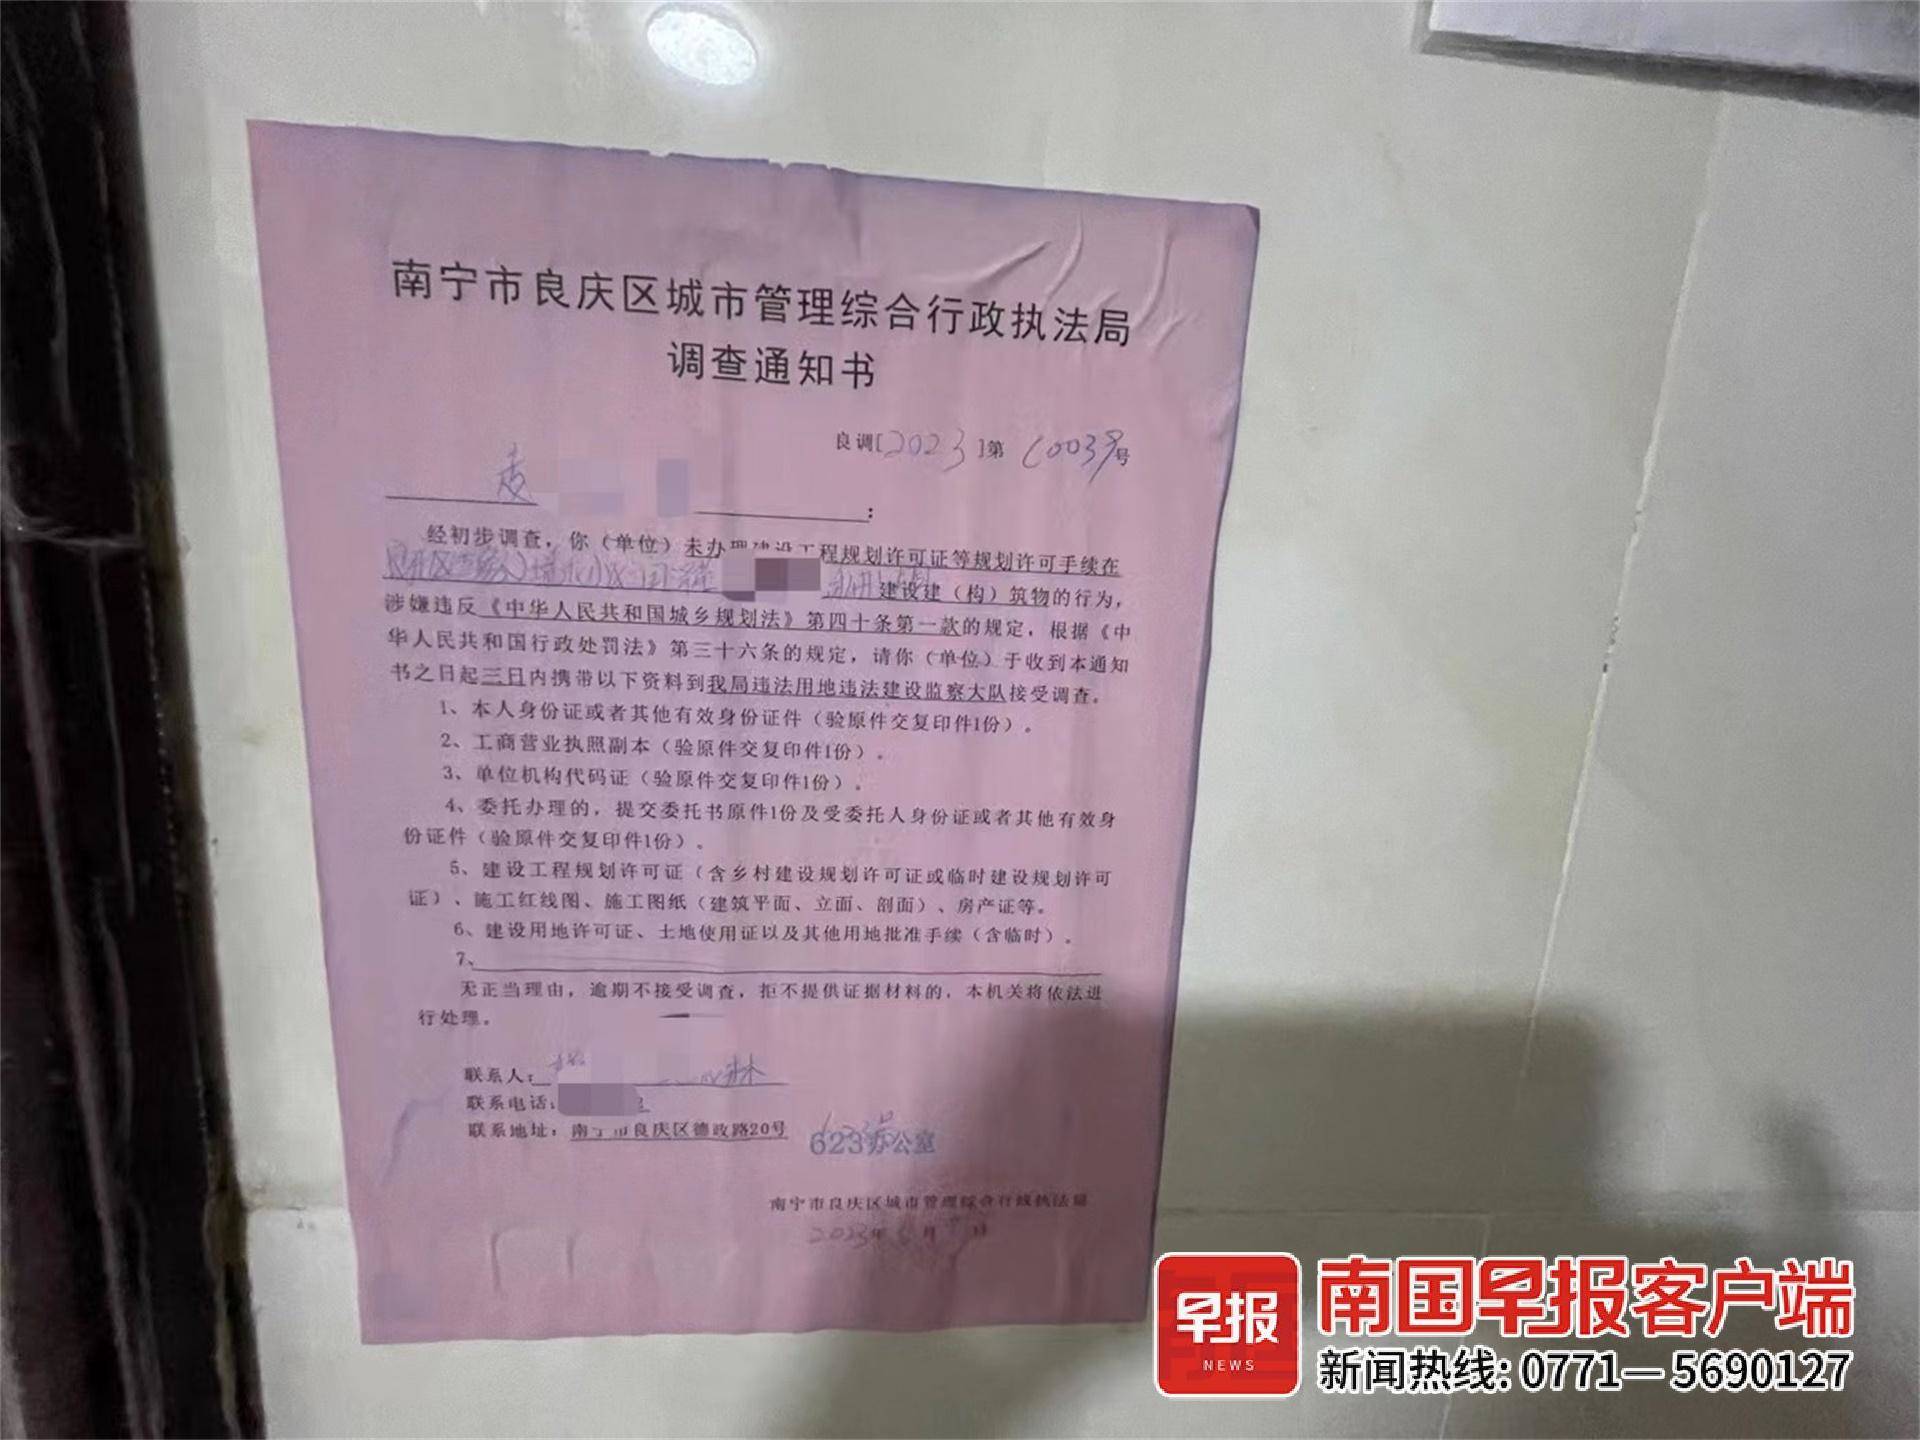 南宁市良庆区城市管理综合行政执法局
调查通知书
良调[2023]第 号
:
经初步调查，你（单位）未办理建设工程规划许可证等规划许可手续在
建设建（构）筑物的行为，
涉嫌违反《中华人民共和国城乡规划法》第四十条第一款的规定，根据《中
华人民共和国行政处罚法》第三十六条的规定，请你（单位）于收到本通知
书之日起三日内携带以下资料到我局违法用地违法建设监察大队接受调查。
1、本人身份证或者其他有效身份证件（验原件交复印件1份）。
2、工商营业执照副本（验原件交复印件1份）。
3、单位机构代码证（验原件交复印件1份）。
4、委托办理的，提交委托书原件1份及受委托人身份证或者其他有效身
份证件（验原件交复印件1份）。
5、建设工程规划许可证（含乡村建设规划许可证或临时建设规划许可
证）、施工红线图、施工图纸（建筑平面、立面、剖面）、房产证等。
6、建设用地许可证、土地使用证以及其他用地批准手续（含临时）。
7、
无正当理由，逾期不接受调查，拒不提供证据材料的，本机关将依法进
行处理。
联系人: 林
联系电话:
联系地址: 南宁市良庆区德政路20号 623办公室
南宁市良庆区城市管理综合行政执法局
2023年 月 日
早报 南国早报客户端
NEWS 新闻热线: 0771—5690127